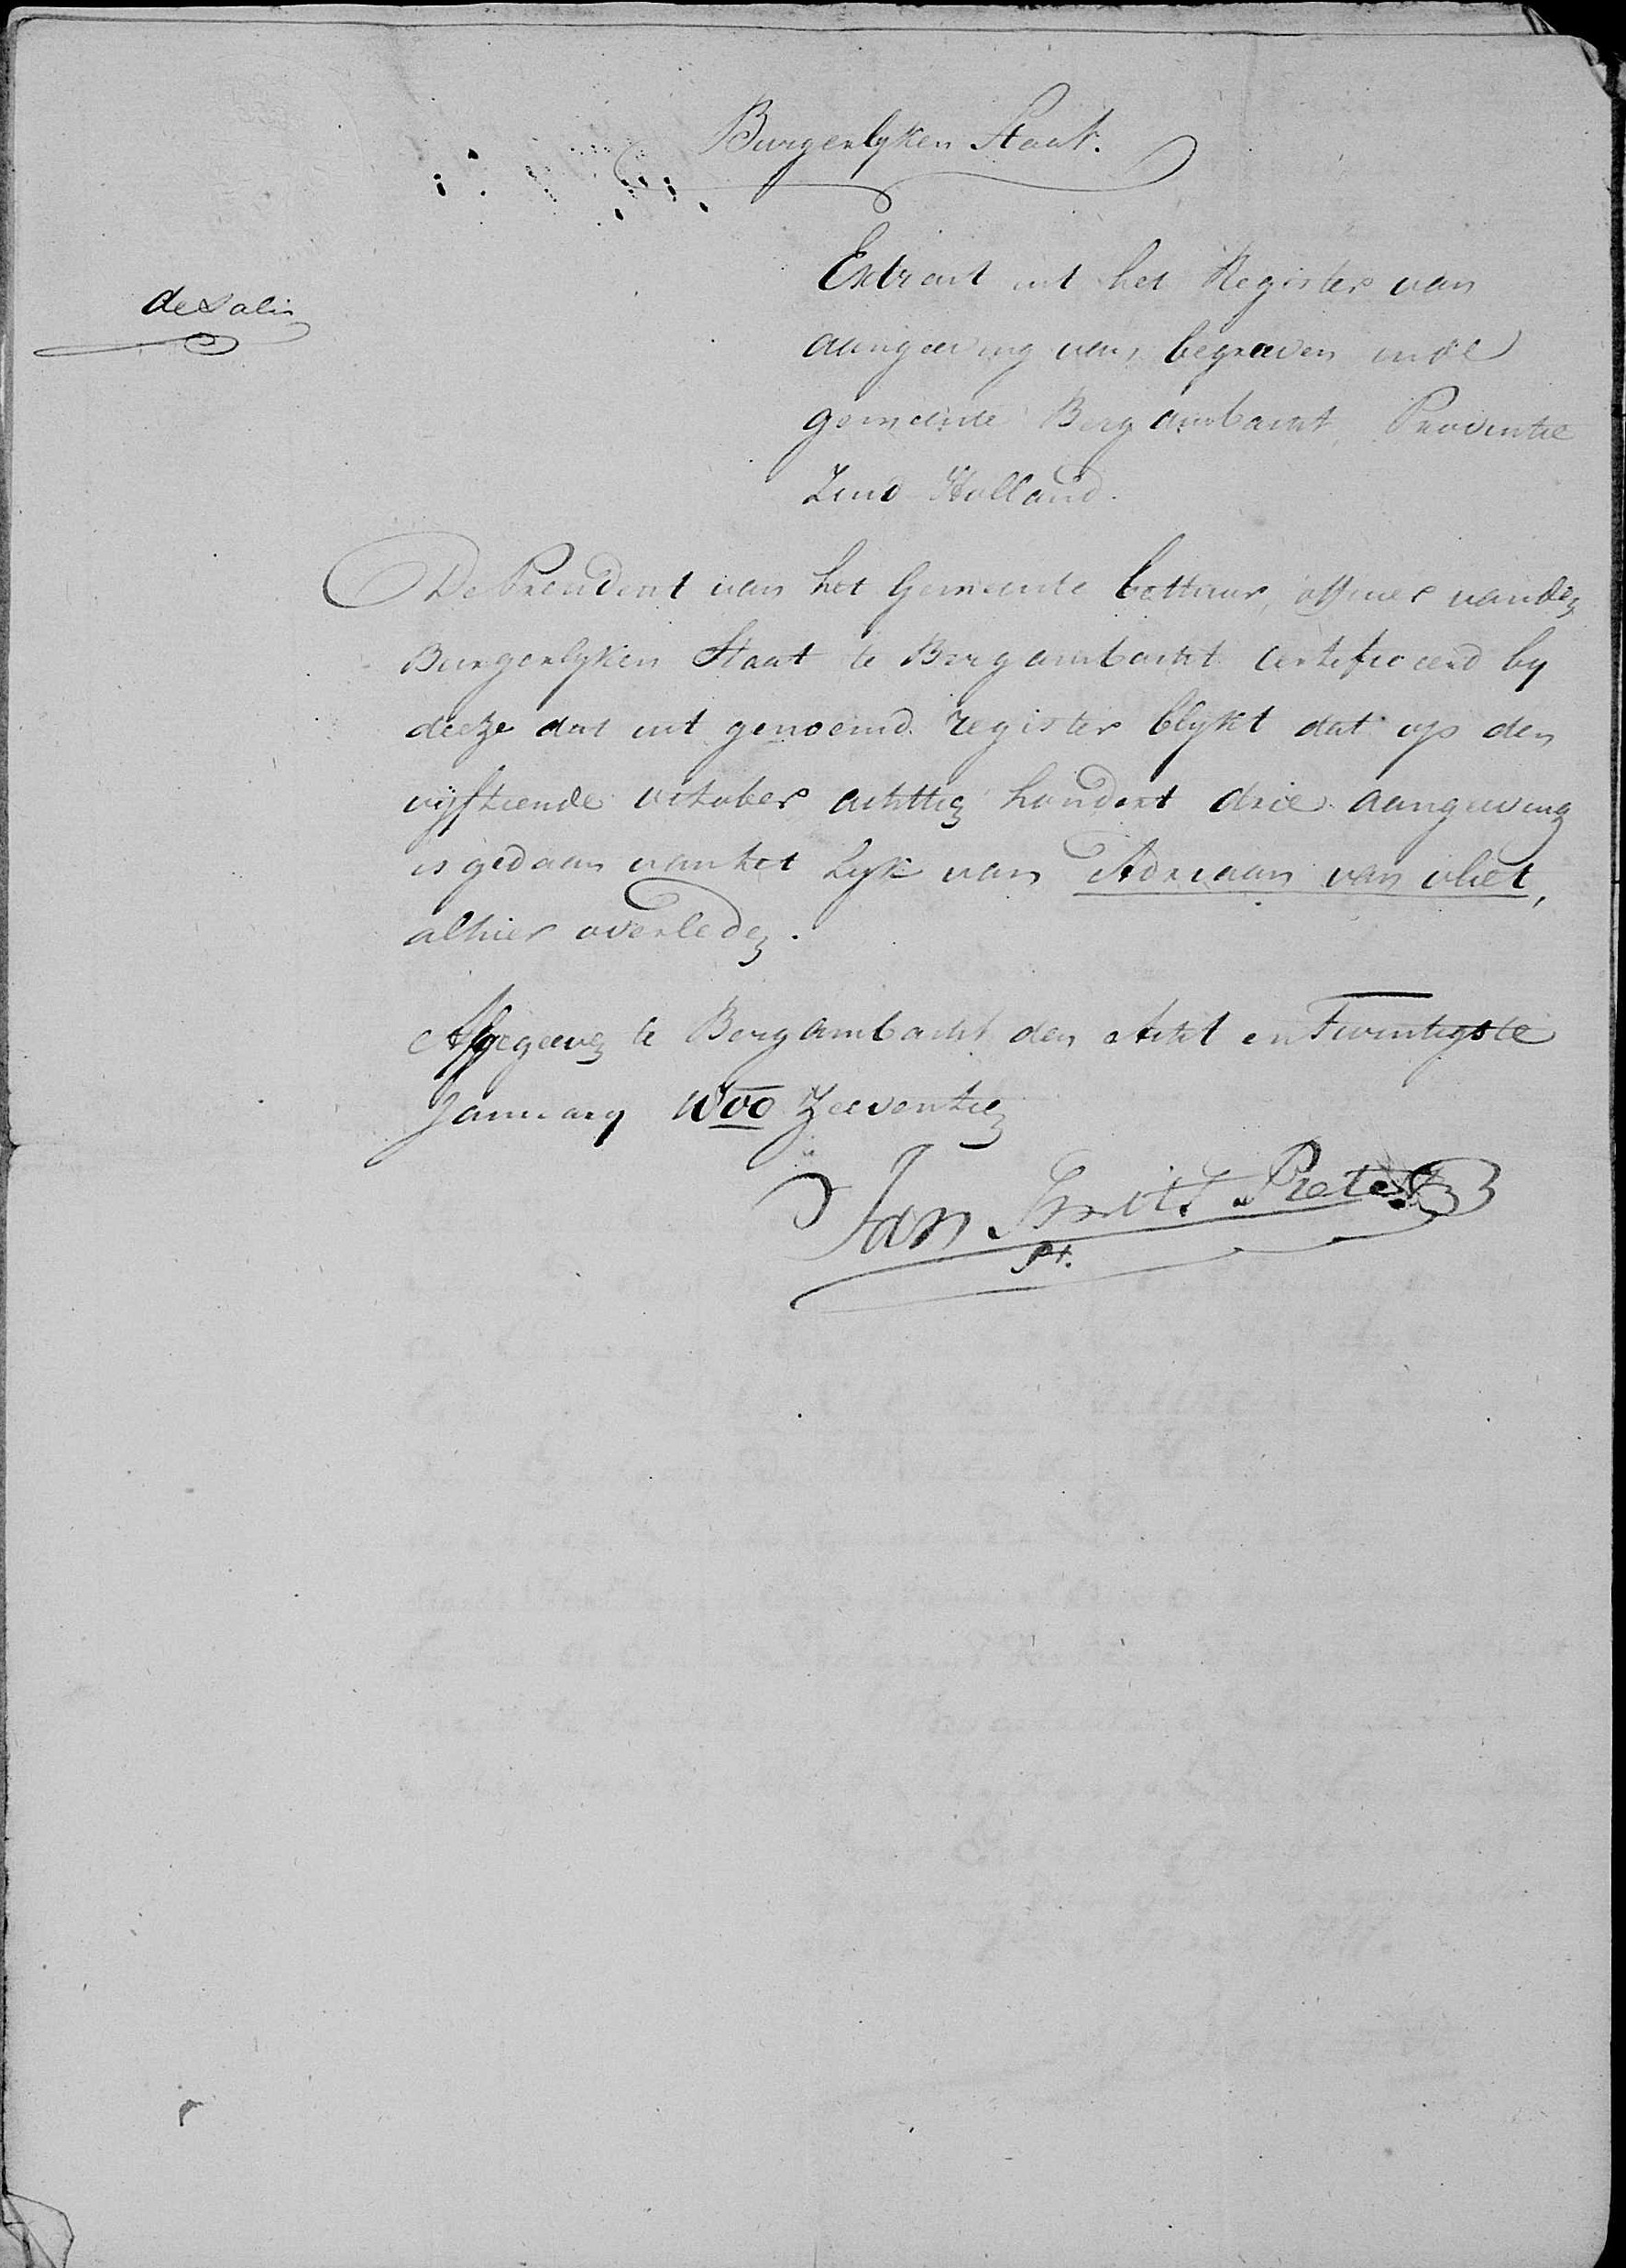 Burgerlyken Staat.
de Salis
Extract uit het Register van
aangeeving van begraven in de
gemeente Bergambacht, Provintie
Zuid Holland.
De President van het Gemeente bestuur, officier van den
Burgerlyken Staat te Bergambacht Certificeerd by
deeze dat uit genoemd register blykt dat op den
vyftiende october achttien hondert drie aangeeving
is gedaan van het Lyk van Adriaan van vliet,
alhier overleden.
Afgegeeven te Bergambacht den Acht en Twintigste
January 1800 Zeeventien
Jan Smits Pieter
pt.